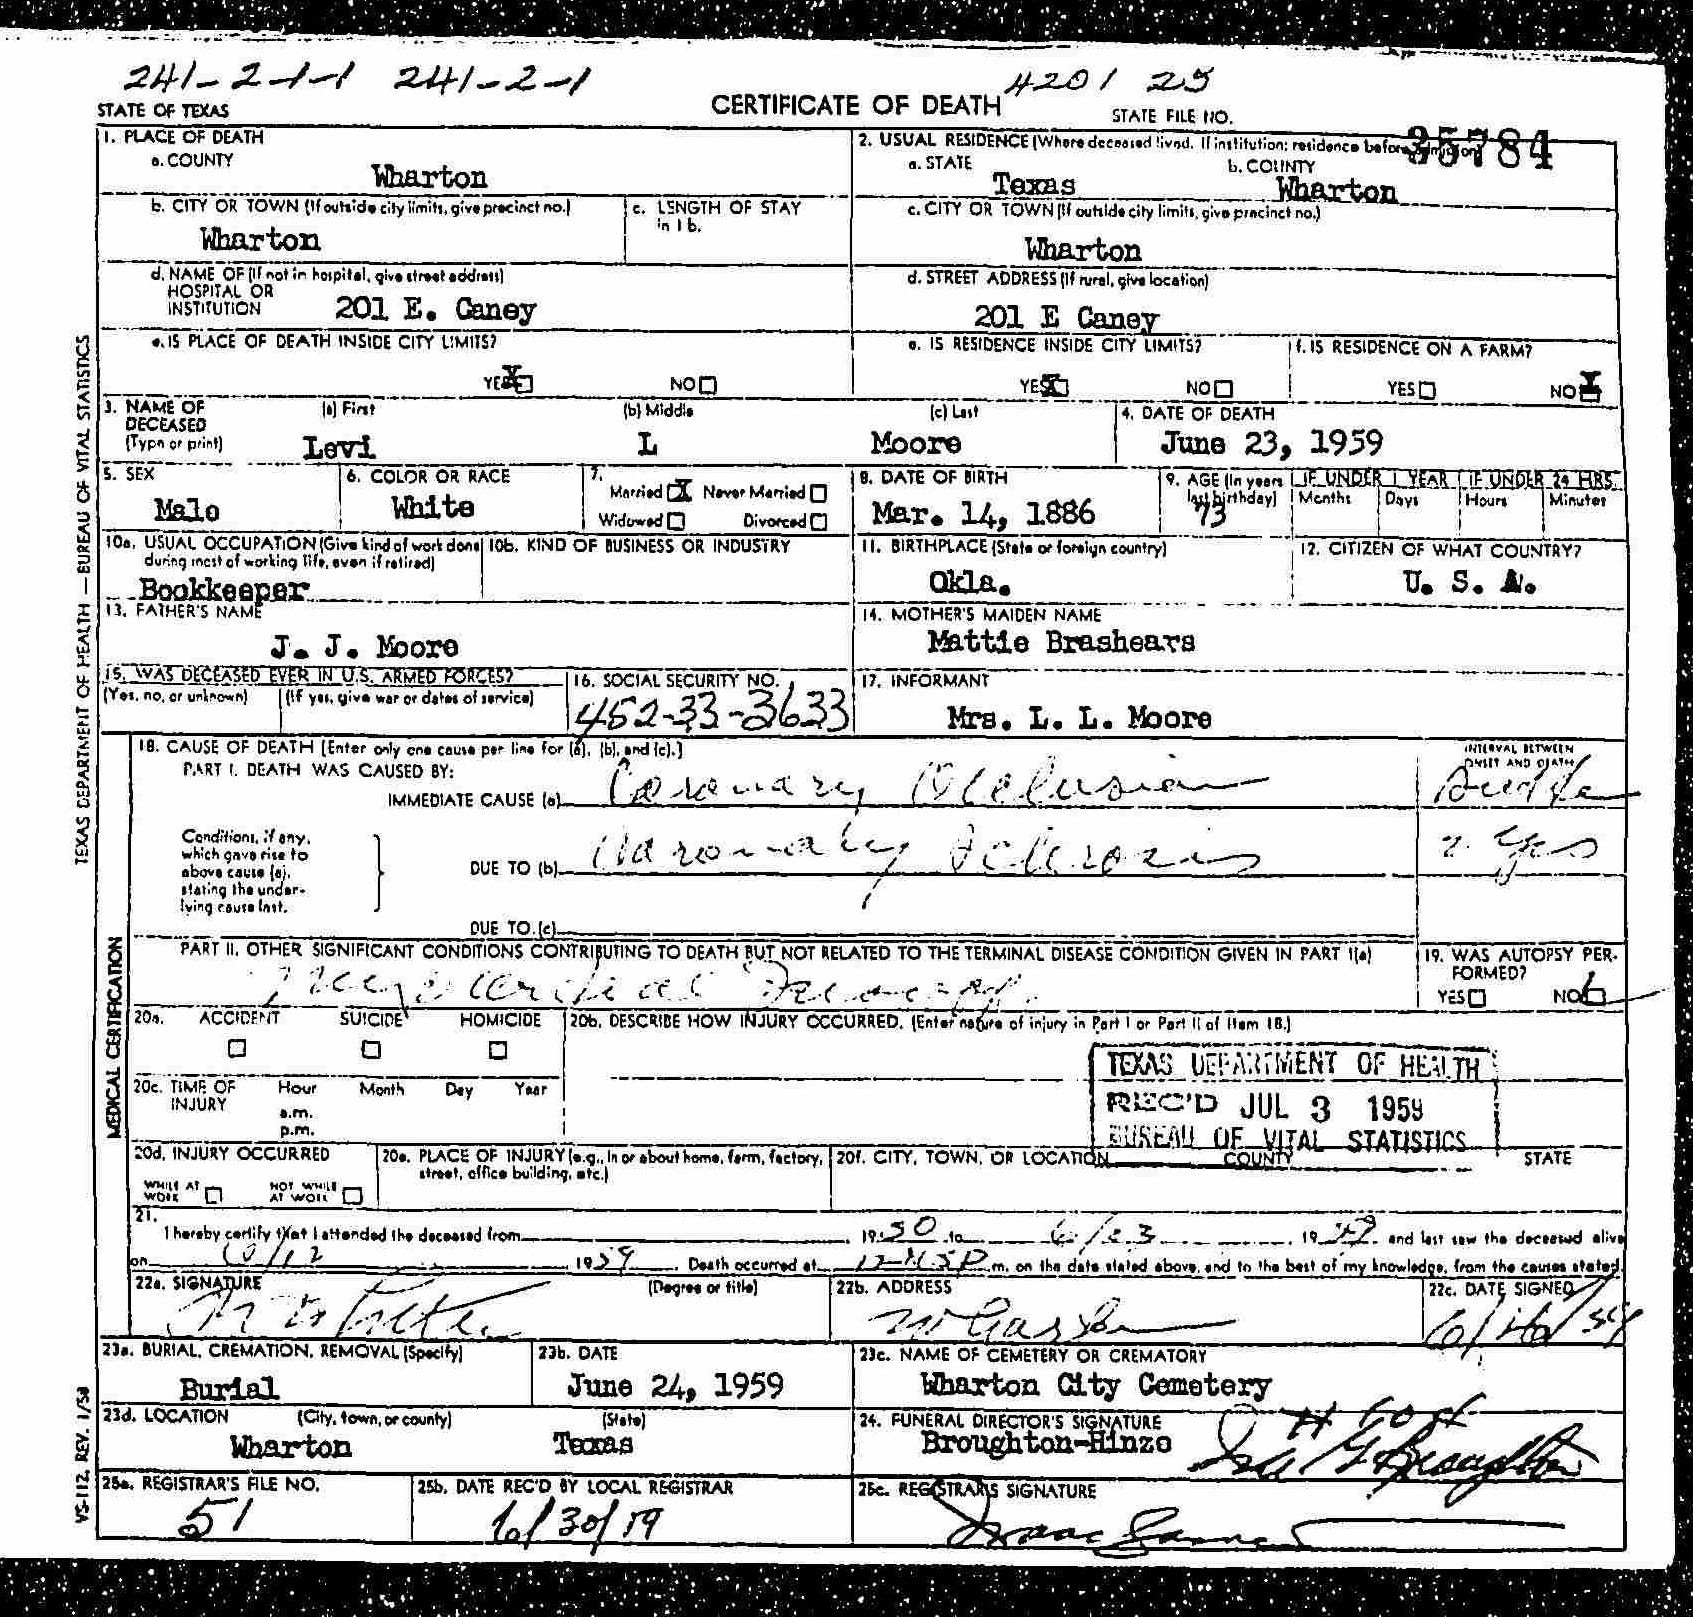 241-2-1-1 241-2-1 4201 25
STATE OF TEXAS CERTIFICATE OF DEATH STATE FILE NO. 35784
1. PLACE OF DEATH
a. COUNTY
Wharton
2. USUAL RESIDENCE (Where deceased lived. If institution: residence before admission)
a. STATE b. COUNTY
Texas Wharton
b. CITY OR TOWN (If outside city limits, give precinct no.) c. LENGTH OF STAY in 1 b.
Wharton
c. CITY OR TOWN (If outside city limits, give precinct no.)
Wharton
d. NAME OF (If not in hospital, give street address)
HOSPITAL OR
INSTITUTION 201 E. Caney
d. STREET ADDRESS (If rural, give location)
201 E Caney
e. IS PLACE OF DEATH INSIDE CITY LIMITS?
YES X NO
e. IS RESIDENCE INSIDE CITY LIMITS? f. IS RESIDENCE ON A FARM?
YES X NO YES NO X
3. NAME OF DECEASED (Type or print) (a) First (b) Middle (c) Last
Levi L Moore
4. DATE OF DEATH
June 23, 1959
5. SEX
Male
6. COLOR OR RACE
White
7. Married X Never Married
Widowed Divorced
8. DATE OF BIRTH
Mar. 14, 1886
9. AGE (In years last birthday) IF UNDER 1 YEAR IF UNDER 24 HRS.
73 Months Days Hours Minutes
10a. USUAL OCCUPATION (Give kind of work done during most of working life, even if retired)
Bookkeeper
10b. KIND OF BUSINESS OR INDUSTRY
11. BIRTHPLACE (State or foreign country)
Okla.
12. CITIZEN OF WHAT COUNTRY?
U. S. A.
13. FATHER'S NAME
J. J. Moore
14. MOTHER'S MAIDEN NAME
Mattie Brashears
15. WAS DECEASED EVER IN U.S. ARMED FORCES?
(Yes, no, or unknown) (If yes, give war or dates of service)
16. SOCIAL SECURITY NO.
452-33-3633
17. INFORMANT
Mrs. L. L. Moore
18. CAUSE OF DEATH [Enter only one cause per line for (a), (b), and (c).]
PART I. DEATH WAS CAUSED BY:
IMMEDIATE CAUSE (a) Coronary Occlusion
INTERVAL BETWEEN ONSET AND DEATH
Sudden
Conditions, if any, which gave rise to above cause (a), stating the underlying cause last.
DUE TO (b) Coronary Sclerosis 2 yrs
DUE TO (c)
PART II. OTHER SIGNIFICANT CONDITIONS CONTRIBUTING TO DEATH BUT NOT RELATED TO THE TERMINAL DISEASE CONDITION GIVEN IN PART I(a)
Myocardial
19. WAS AUTOPSY PERFORMED?
YES NO
20a. ACCIDENT SUICIDE HOMICIDE
20b. DESCRIBE HOW INJURY OCCURRED. (Enter nature of injury in Part I or Part II of Item 18.)
20c. TIME OF INJURY Hour Month Day Year
a.m.
p.m.
TEXAS DEPARTMENT OF HEALTH
REC'D JUL 3 1959
BUREAU OF VITAL STATISTICS
20d. INJURY OCCURRED
WHILE AT WORK NOT WHILE AT WORK
20e. PLACE OF INJURY (e.g., in or about home, farm, factory, street, office building, etc.)
20f. CITY, TOWN, OR LOCATION COUNTY STATE
21.
I hereby certify that I attended the deceased from 1950 to 6/23 1959 and last saw the deceased alive
on 6/12 1959. Death occurred at 12:45P m. on the date stated above, and to the best of my knowledge, from the causes stated.
22a. SIGNATURE (Degree or title)
22b. ADDRESS
Wharton
22c. DATE SIGNED
6/26/59
23a. BURIAL, CREMATION, REMOVAL (Specify)
Burial
23b. DATE
June 24, 1959
23c. NAME OF CEMETERY OR CREMATORY
Wharton City Cemetery
23d. LOCATION (City, town, or county) (State)
Wharton Texas
24. FUNERAL DIRECTOR'S SIGNATURE
Broughton-Hinze Ira G Broughton
25a. REGISTRAR'S FILE NO.
51
25b. DATE REC'D BY LOCAL REGISTRAR
6/30/59
25c. REGISTRAR'S SIGNATURE
TEXAS DEPARTMENT OF HEALTH — BUREAU OF VITAL STATISTICS
MEDICAL CERTIFICATION
VS-112, REV. 1/58